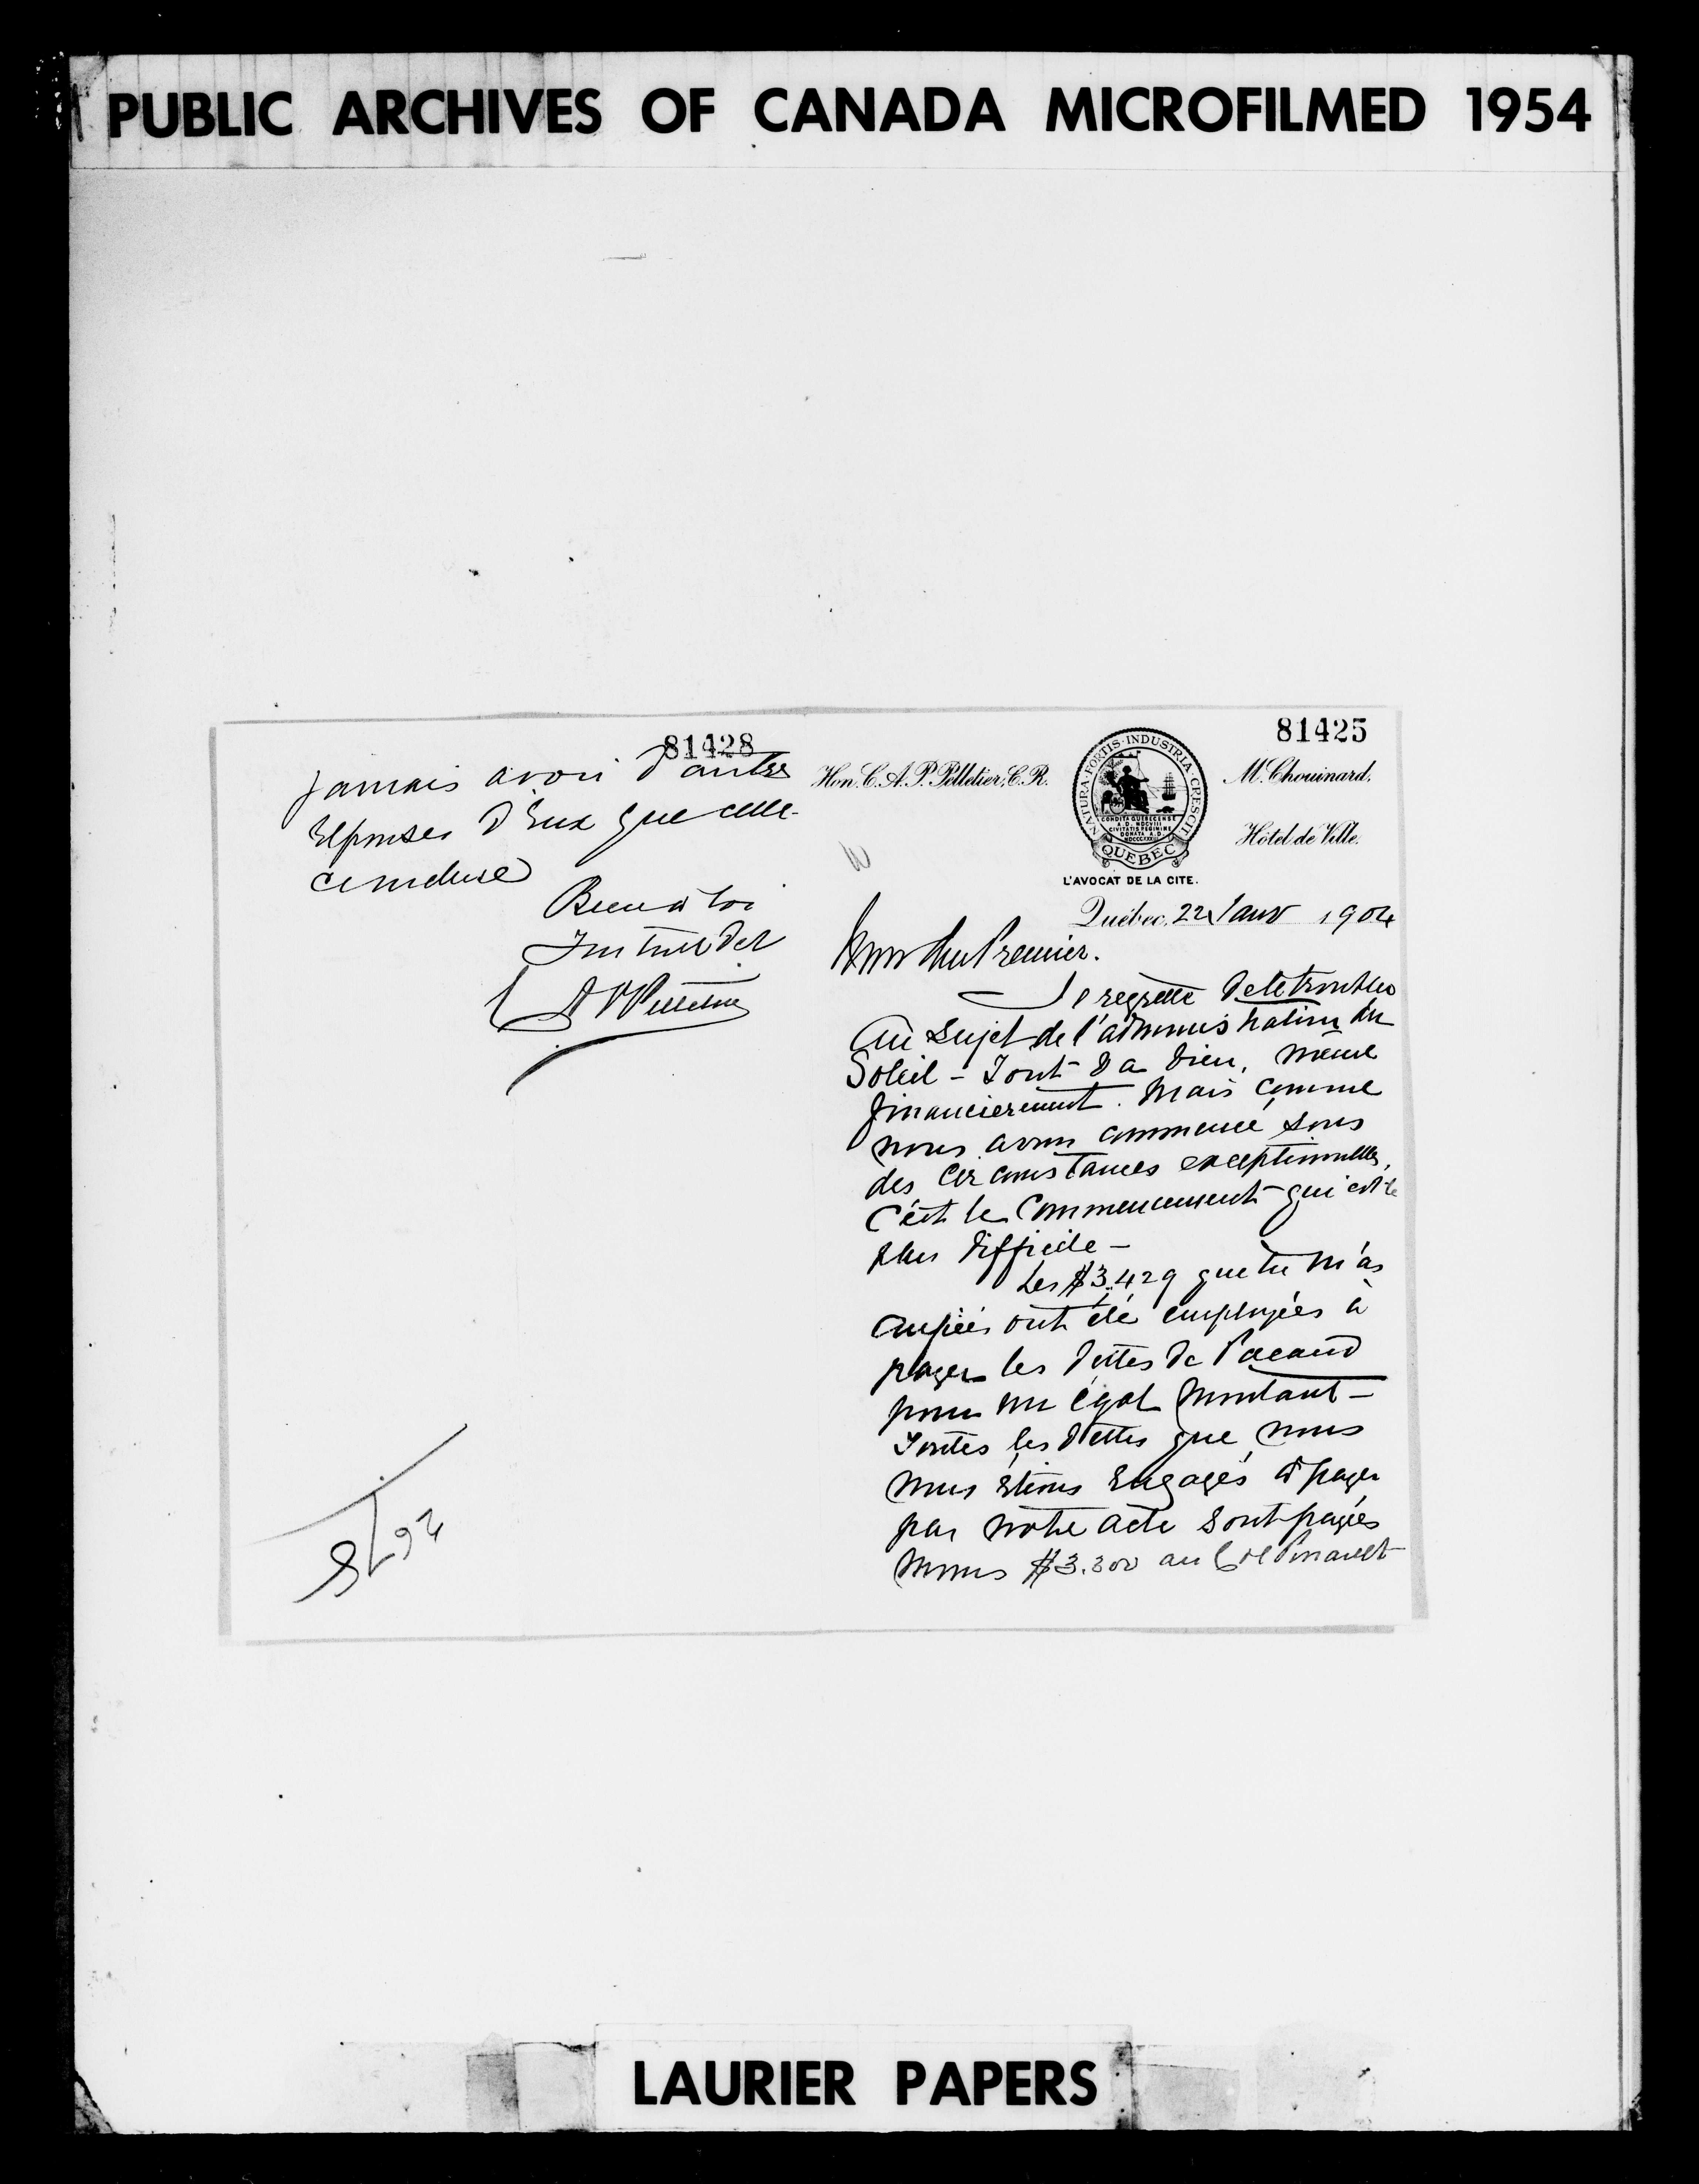 PUBLIC ARCHIVES OF CANADA MICROFILMED 1954
81428
jamais avoir d'autre
réponses d'eux que celle-
ci incluse
Bien à toi
Ton tout dév
C A P Pelletier
81425
Hon. C. A. P. Pelletier, C. R.
M. Chouinard,
Hôtel de Ville.
NATURA·FORTIS·INDUSTRIA·CRESCIT
CONDITA QUEBECENSE
A.D. MDCVIII
CIVITATIS REGIMINE
DONATA A.D.
MDCCCXXXIII
QUEBEC
L'AVOCAT DE LA CITE.
Québec, 22 Janv 1904
Mon cher Premier.
Je regrette de te troubler
au sujet de l'administration du
Soleil - Tout va bien, même
financièrement. Mais comme
nous avons commencé sous
des circonstances exceptionnelles,
c'est le commencement qui est le
plus difficile -
Les $3,429 que tu m'as
ont été employées à
payer les dettes de Pacaud
pour un égal montant -
Toutes les dettes que nous
nous étions engagés à payer
par notre acte sont payées
moins $3.300 au Col Pinault
LAURIER PAPERS